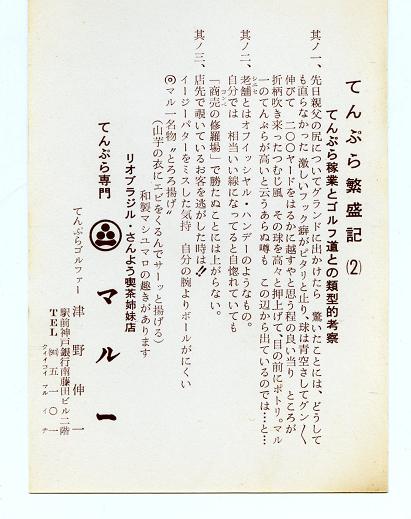 てんぷら繁盛記(2)
てんぷら稼業とゴルフ道との類型的考察
其ノ一、先日親父の尻についてグランドに出かけたら 驚いたことには、どうして
も直らなかった 激しいフック癖がピタリと止り、球は青空さしてグン〱
伸びて 二〇〇ヤードをはるかに越すやと思う程の良い当り ところが
折柄吹き来ったつむじ風 その球を高々と押上げて、目の前にポトリ。マル
一のてんぷらが高いと云うあらぬ噂も この辺から出ているのでは…と…
其ノ二、老舗とはオフイッシャル・ハンデーのようなもの。
シニセ
自分では 相当いい線になってると自惚れていても
「商売の修羅場」で勝たぬことには上がらない。
其ノ三、店先で覗いているお客を逃がした時は!!
イージーパターをミスした気持 自分の腕よりボールがにくい
◎マル一名物〝とろろ揚げ〟
(山芋の衣にエビをくるんでサーッと揚げる)
和製マシュマロの趣きがあります
リオブラジル・さんよう喫茶姉妹店
てんぷら専門 マル一
てんぷらゴルファー
津野伸一
駅前神戸銀行南藤田ビル二階
TEL ㉒五一〇一
クイオコイ マル イチ